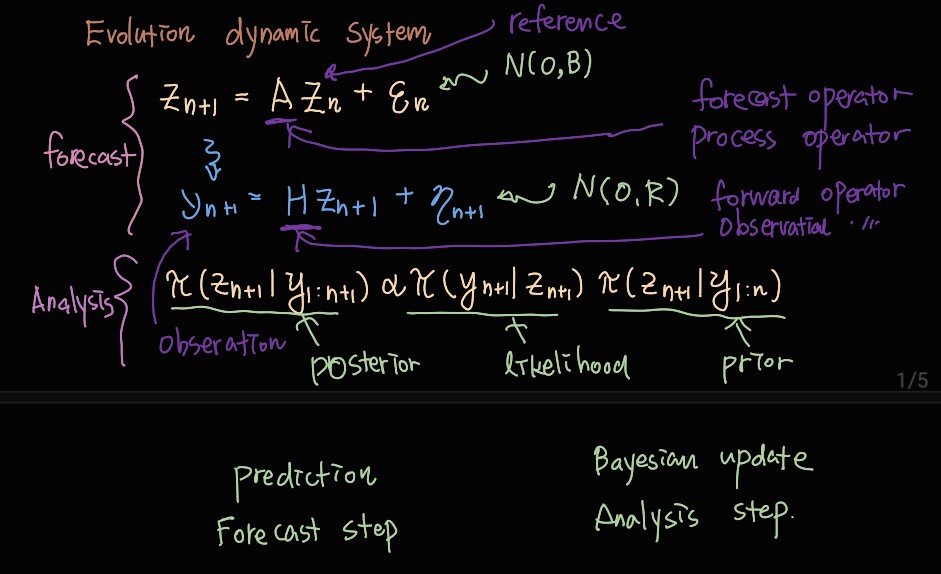 Evolution dynamic system
reference
Z_{n+1} = A Z_n + ε_n
N(0,B)
forecast operator
process operator
forecast
y_{n+1} = H Z_{n+1} + η_{n+1}
N(0,R)
forward operator
Observatial 〃
Analysis
π(Z_{n+1}|y_{1:n+1}) ∝ π(y_{n+1}|Z_{n+1}) π(Z_{n+1}|y_{1:n})
obseration
posterior
likelihood
prior
1/5
prediction
Forecast step
Bayesian update
Analysis step.